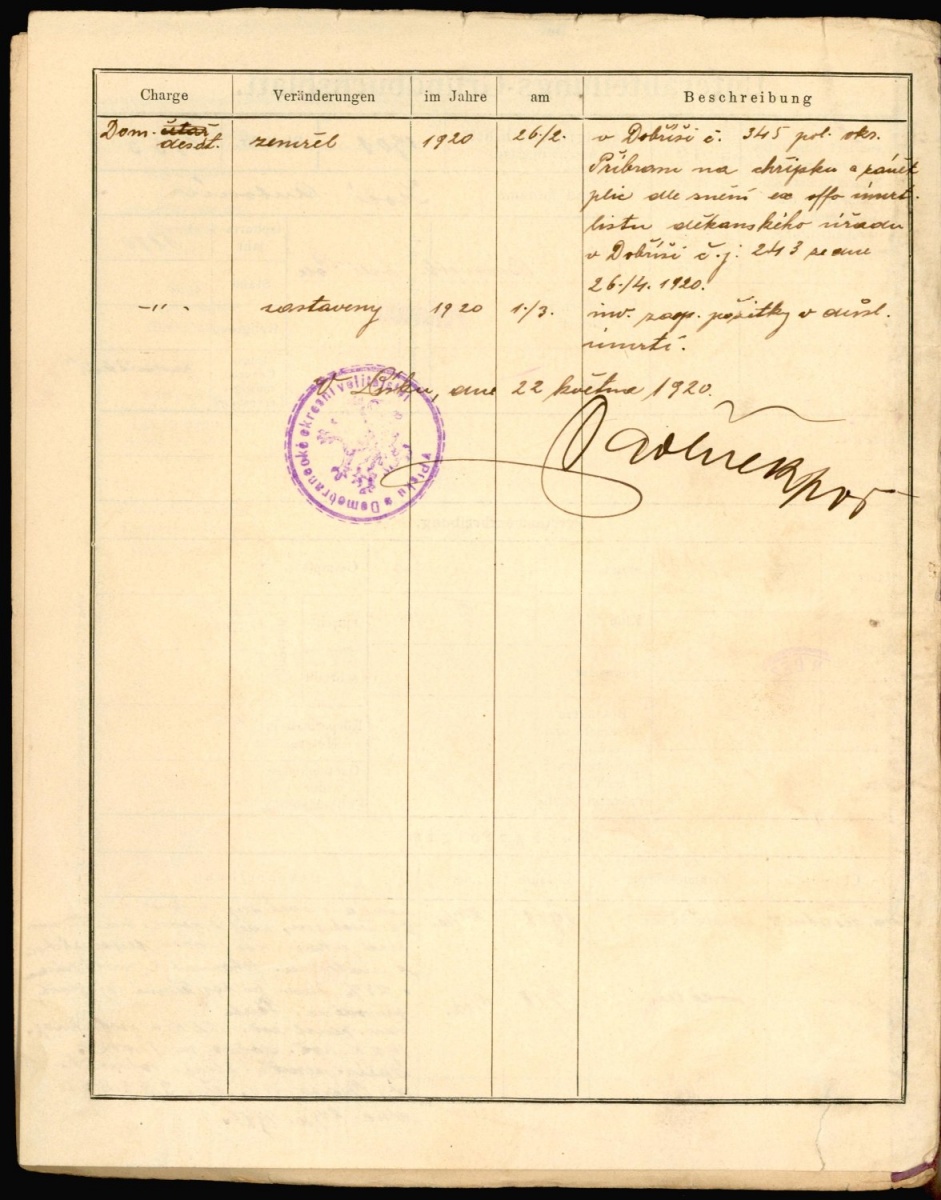 Charge Veränderungen im Jahre am Beschreibung
Dom. četař zemřel 1920 26./2. v Dobříši č. 345 pol. okr.
desát.
Příbram na chřipku a zánět
plic dle znění ex offo úmrt.
listu děkanského úřadu
v Dobříši č.j: 243 ze dne
26./4. 1920.
-"- zastaveny 1920 1./3. inv. zaop. požitky v důsl.
úmrtí.
V Písku, dne 22 května 1920.
Domobranecké okresní velitelství v Písku